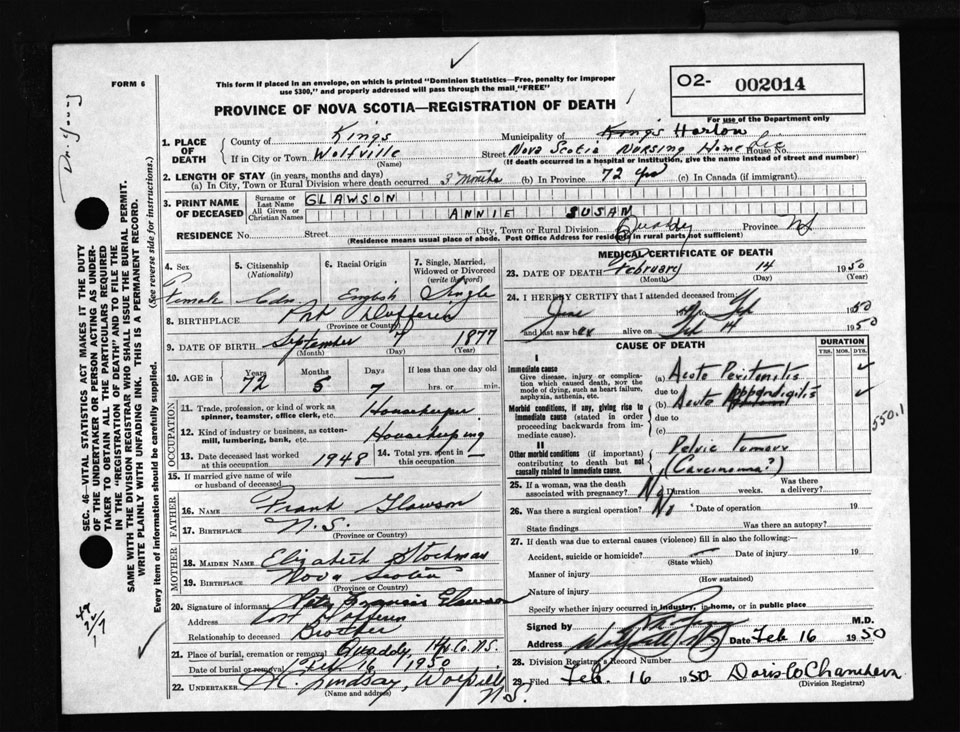 FORM 6
This form if placed in an envelope, on which is printed "Dominion Statistics—Free, penalty for improper
use $300," and properly addressed will pass through the mail "FREE"
O2- 002014
For use of the Department only
PROVINCE OF NOVA SCOTIA—REGISTRATION OF DEATH
Dr. Young
SEC. 46—VITAL STATISTICS ACT MAKES IT THE DUTY
OF THE UNDERTAKER OR PERSON ACTING AS UNDER-
TAKER TO OBTAIN ALL THE PARTICULARS REQUIRED
IN THE "REGISTRATION OF DEATH" AND TO FILE THE
SAME WITH THE DIVISION REGISTRAR WHO SHALL ISSUE THE BURIAL PERMIT.
WRITE PLAINLY WITH UNFADING INK. THIS IS A PERMANENT RECORD.
Every item of information should be carefully supplied. (See reverse side for instructions.)
1. PLACE OF DEATH
County of Kings
Municipality of Kings Horton
If in City or Town Wolfville
(Name)
Street Nova Scotia Nursing Home House No.
(If death occurred in a hospital or institution, give the name instead of street and number)
2. LENGTH OF STAY (in years, months and days)
(a) In City, Town or Rural Division where death occurred 3 months (b) In Province 72 yrs (c) In Canada (if immigrant)
3. PRINT NAME OF DECEASED
Surname or Last Name GLAWSON
All Given or Christian Names ANNIE SUSAN
RESIDENCE No. Street City, Town or Rural Division Quoddy Province NS
(Residence means usual place of abode. Post Office Address for residents in rural parts not sufficient)
4. Sex
Female
5. Citizenship
(Nationality)
Cdn.
6. Racial Origin
English
7. Single, Married,
Widowed or Divorced
(write the word)
Single
8. BIRTHPLACE Port Dufferin
(Province or Country)
9. DATE OF BIRTH September 7 1877
(Month) (Day) (Year)
10. AGE in
Years Months Days If less than one day old
72 5 7 hrs. or min.
OCCUPATION
11. Trade, profession, or kind of work as
spinner, teamster, office clerk, etc. Housekeeper
12. Kind of industry or business, as cotton-
mill, lumbering, bank, etc. Housekeeping
13. Date deceased last worked
at this occupation 1948
14. Total yrs. spent in
this occupation
15. If married give name of wife
or husband of deceased
FATHER
16. Name Frank Glawson
17. Birthplace N.S.
(Province or Country)
MOTHER
18. MAIDEN NAME Elizabeth Stockman
19. BIRTHPLACE Nova Scotia
(Province or Country)
20. Signature of informant Francis Glawson
Address Port Dufferin
Relationship to deceased Brother
21. Place of burial, cremation or removal Quoddy, Hfx. Co. N.S.
Date of burial or removal Feb 16 1950
22. UNDERTAKER Lindsay, Wolfville N.S.
(Name and address)
MEDICAL CERTIFICATE OF DEATH
23. DATE OF DEATH February 14 1950
(Month) (Day) (Year)
24. I HEREBY CERTIFY that I attended deceased from
June 19 to Feb 1950
and last saw her alive on Feb 14 1950
CAUSE OF DEATH
DURATION
YRS. MOS. DYS.
I
Immediate cause
Give disease, injury or complica-
tion which caused death, NOT the
mode of dying, such as heart failure,
asphyxia, asthenia, etc.
(a) Acute Peritonitis
due to
Morbid conditions, if any, giving rise to
immediate cause (stated in order
proceeding backwards from im-
mediate cause).
(b) Acute Appendicitis
due to
(c)
550.1
II
Other morbid conditions (if important)
contributing to death but not
causally related to immediate cause.
Pelvic tumour
(Carcinoma?)
25. If a woman, was the death
associated with pregnancy? No Duration weeks. Was there
a delivery?
26. Was there a surgical operation? No Date of operation 19
State findings Was there an autopsy?
27. If death was due to external causes (violence) fill in also the following:—
Accident, suicide or homicide? Date of injury 19
(State which)
Manner of injury
(How sustained)
Nature of injury
Specify whether injury occurred in industry, in home, or in public place
Signed by M.D.
Address Wolfville NS Date Feb 16 1950
28. Division Registrar's Record Number
29. Filed Feb. 16 1950
(Division Registrar)